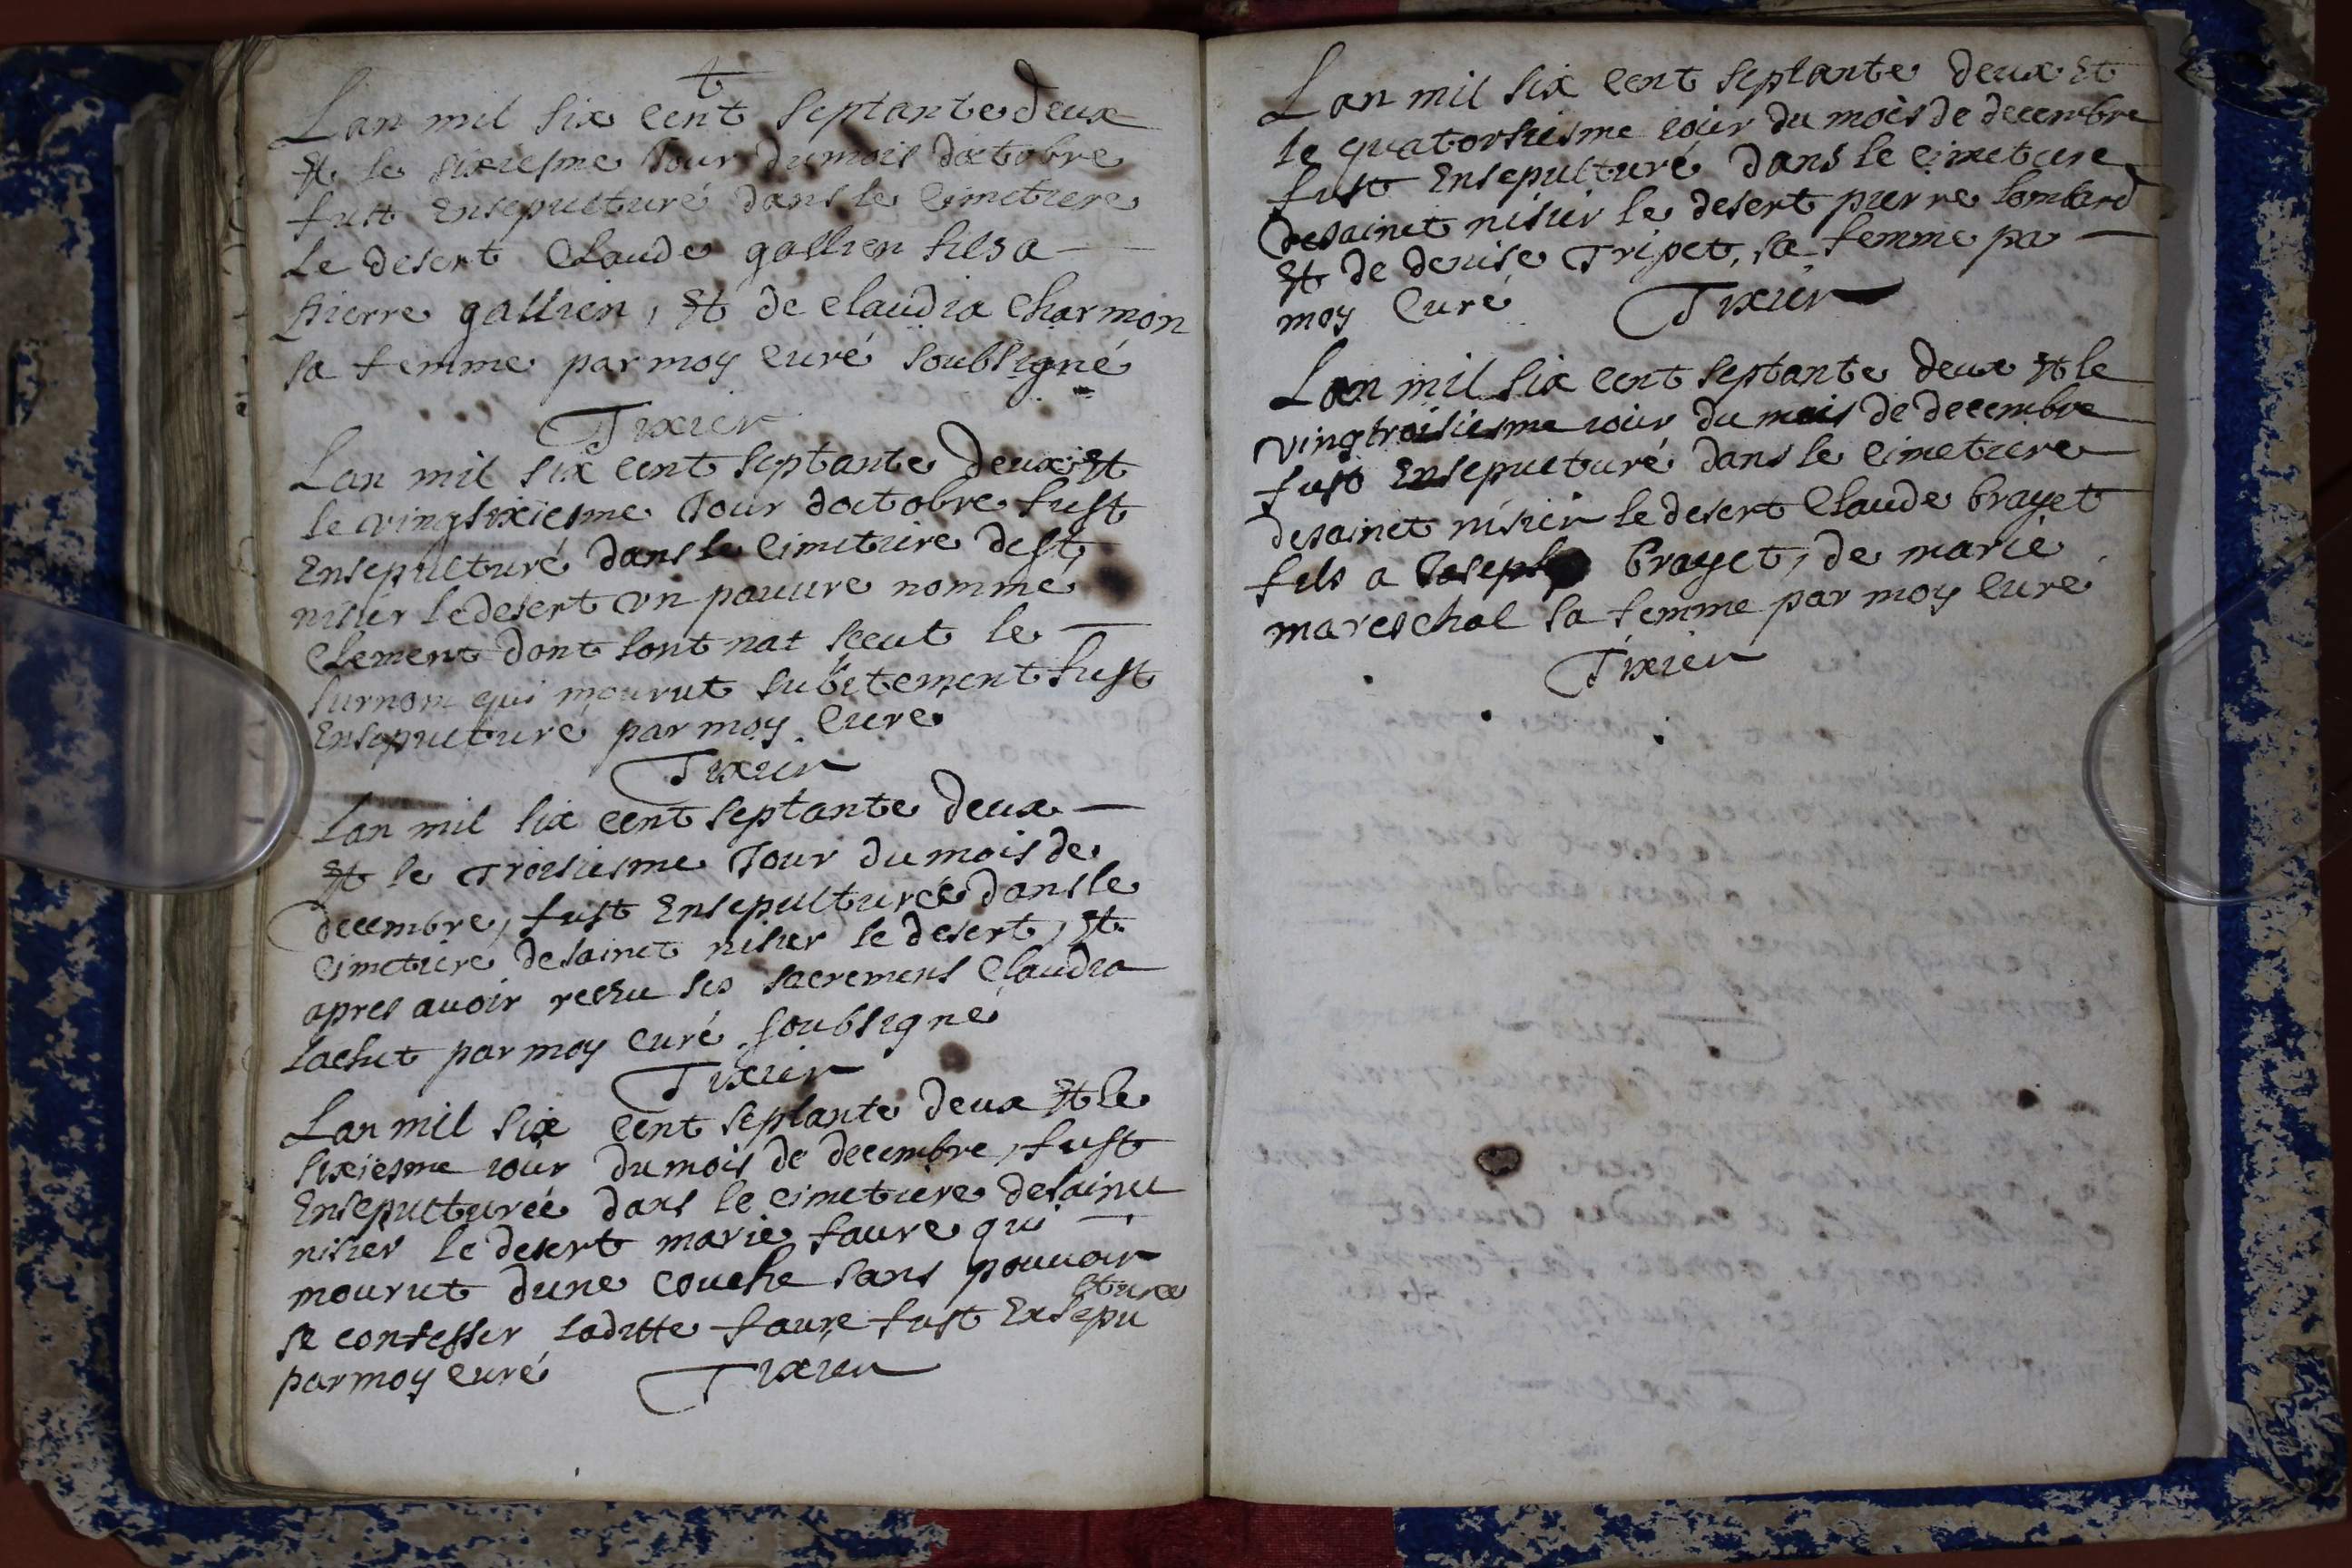 Lan mil six cent septante deux
et le sixiesme Jour du mois doctobre
fust ensepulturé dans le cimetiere
Le desert Claude gallien fils a
pierre gallien, et de claudia Charmon
sa femme par moy curé soubsigné
Tixier
Lan mil six cent septante deux et
le vingsixiesme Jour doctobre fust
ensepulturé dans le cimetiere de st
nisier le desert un pauure nommé
Clement dont lont nat sceut le
surnom qui mourut subitement fust
ensepulturé par moy cure
Tixier
Lan mil six cent septante deux
et le Troisiesme Jour du mois de
decembre, fust ensepulturée dans le
cimetiere desainct nisier le desert, et
apres auoir recu ses sacremens Claudia
Lachet par moy curé soubsigné
Tixier
Lan mil six cent septante deux et le
sixiesme iour du mois de decembre, fust
ensepulturée dans le cimetiere desainct
nisier le desert marie faure qui
mourut dune couche sans pouuoir
se confesser laditte faure fust ensepu
lturee
par moy curé Tixier
Lan mil six cent septante deux et
le quatorsiesme iour du mois de decembre
fust ensepulturé dans le cimetiere
desainct nisier le desert pierre lombard
et de denise Tripet, sa femme pa
moy Curé Tixier
Lan mil six cent septante deux et le
vingtroisiesme iour du mois de decembre
fust ensepulturé dans le cimetiere
desainct nisier le desert Claude brayet
fils a Joseph brayet, de marie
mareschal sa femme par moy curé
Tixier